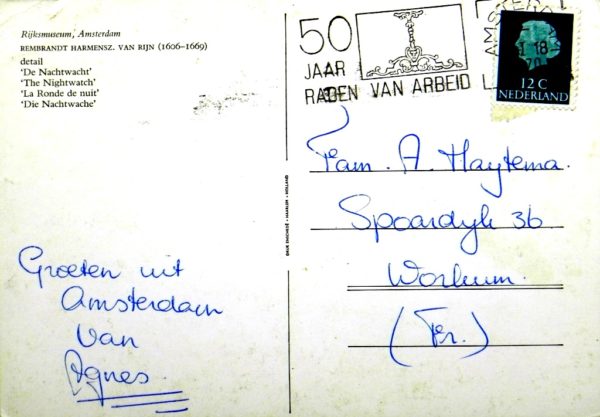 Rijksmuseum, Amsterdam
REMBRANDT HARMENSZ. VAN RIJN (1606-1669)
detail
'De Nachtwacht'
'The Nightwatch'
'La Ronde de nuit'
'Die Nachtwache'
Groeten uit
Amsterdam
van
Agnes.
50
JAAR
RADEN VAN ARBEID
AMSTERDAM
18
12 C
NEDERLAND
Fam. A. Haytema.
Spoordyk 36
Workum.
(Fr.)